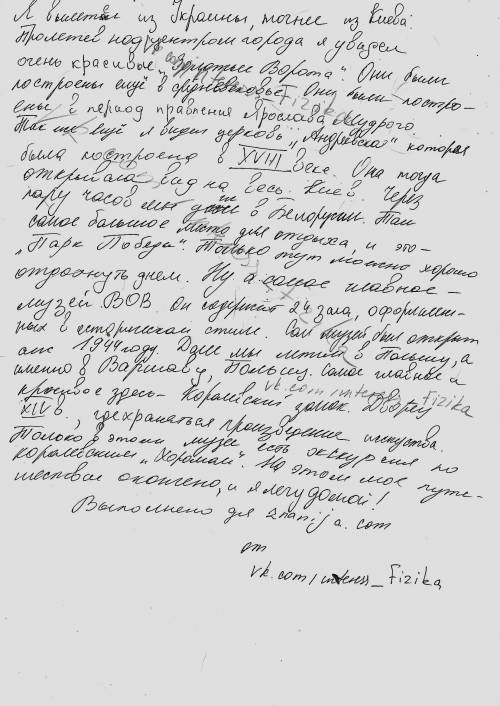 Я вылетел из Украины, точнее из Киева.
Пролетев над центром города я увидел
очень красивые "Золотые Ворота". Они были
построены ещё в средневековье. Они были постро-
ены в период правления Ярослава Мудрого.
Так же ещё я видел церковь "Андреевская" которая
была построена в XVIII веке. Она тогда
открывала вид на весь Киев. Через
пару часов мы уже в Белоруссии. Там
самое большое место для отдыха, и это -
"Парк Победы". Только тут можно хорошо
отдохнуть днем. Ну а самое главное -
музей ВОВ он содержит 24 зала, оформлен-
ных в историческом стиле. Сам музей был открыт
в 1944 году. Далее мы летим в Польшу, а
именно в Варшаву, Польшу. Самое главное и
красивое здесь - Королевский замок. Дворец
XIV в., где хранаться произведение искуства.
Только в этом музее есть экскурсия по
королевским "Хоромам". На этом мое путе-
шествие окончено, и я лечу домой!
Выполнено для znanija.com
от
vk.com/intenss_Fizika
vk.com/intenss_Fizika